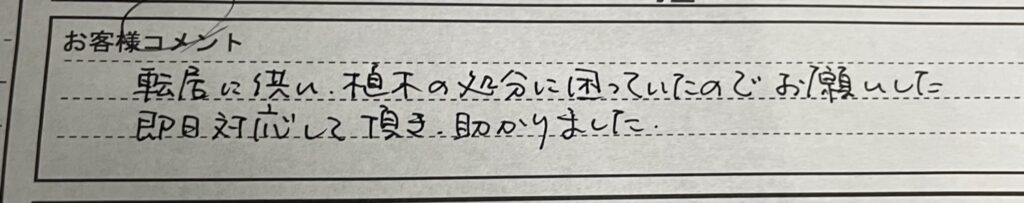 お客様コメント
転居に供い、植木の処分に困っていたのでお願いした
即日対応して頂き、助かりました。